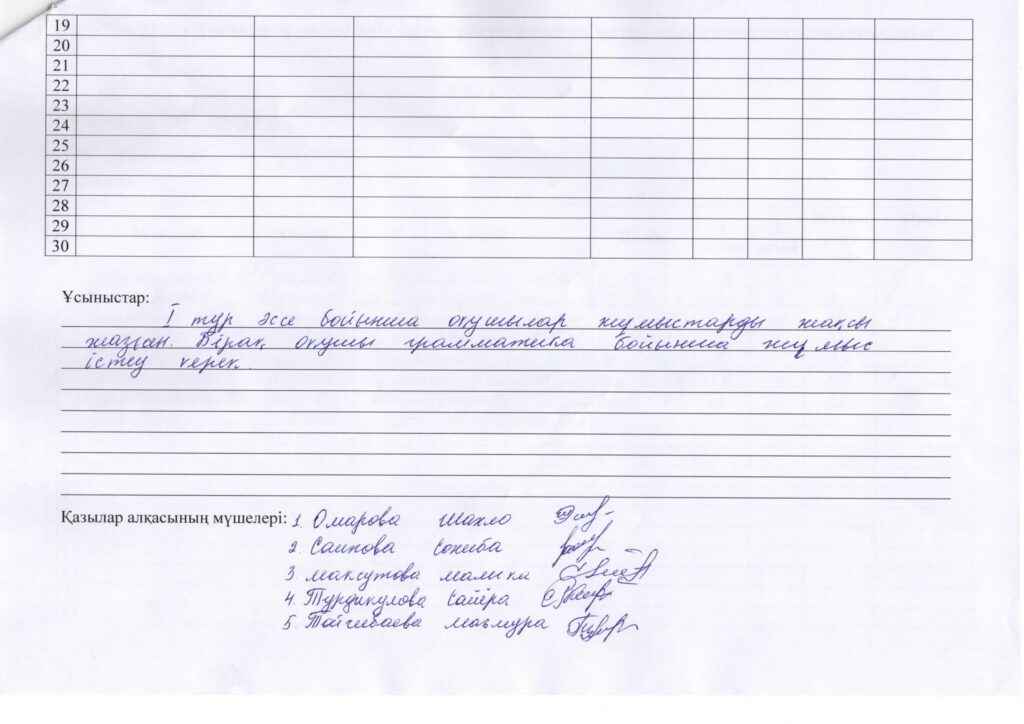 19
20
21
22
23
24
25
26
27
28
29
30
Ұсыныстар:
I тур эссе бойынша оқушылар жұмыстарды жақсы
жазған. Бірақ оқушы грамматика бойынша жұмыс
істеу керек.
Қазылар алқасының мүшелері: 1. Омарова Шахло
2. Саипова Сохиба
3 Максутова Малика
4. Турдикулова Сайёра
5. Тойчибаева Маъмура